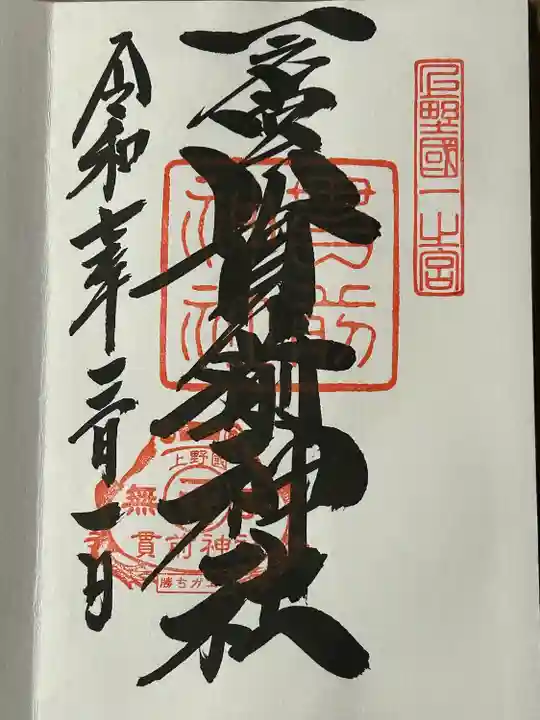 上野國一之宮
一之宮貫前神社
貫前
神社
上野國
無
貫前神
勝ちガ
令和七年三月一日